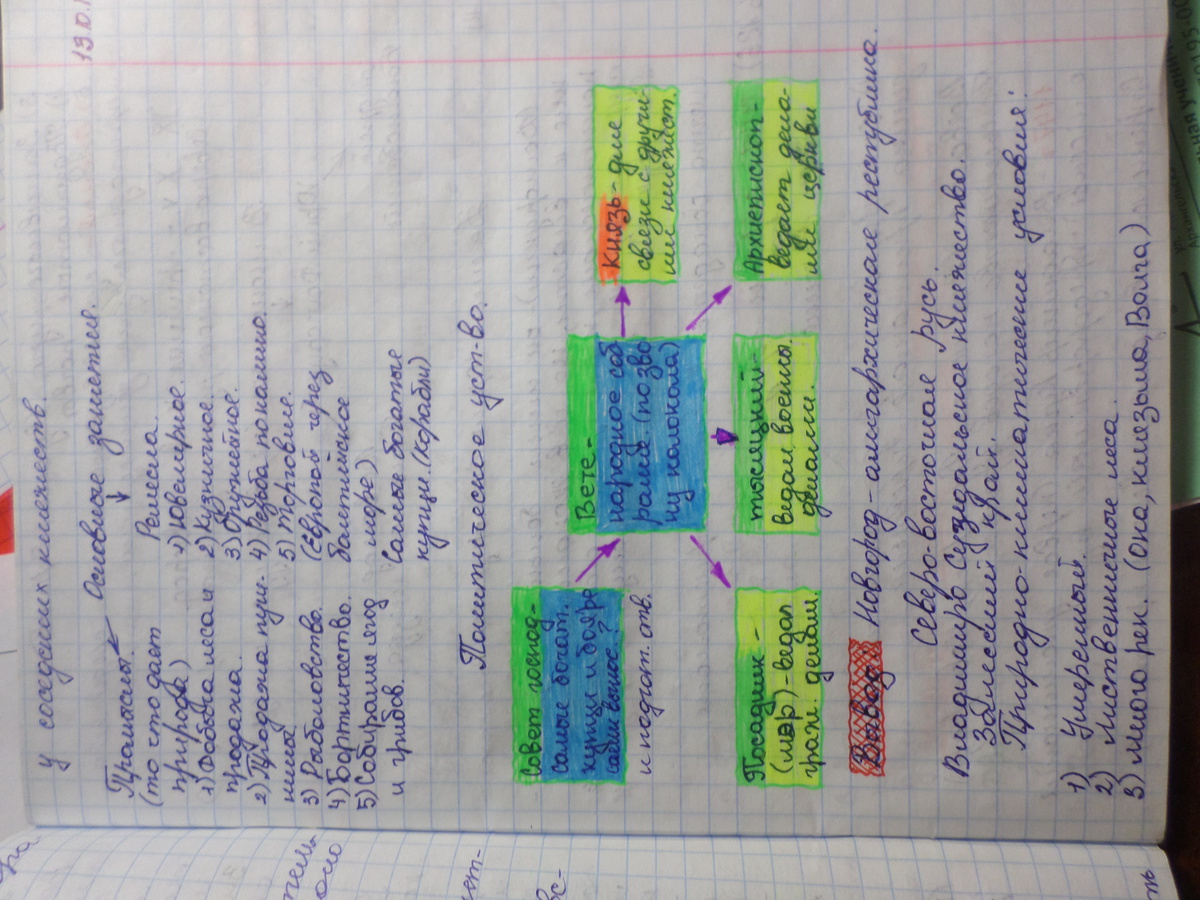 19.10.
у соседних княжеств.
Основные занятия.
Промыслы.
(то что даёт
природа)
1) Добыча леса и
продажа.
2) Продажа пуш-
ниной.
3) Рыболовство.
4) Бортничество.
5) Собирание ягод
и грибов.
Ремесла.
1) Ювелирное.
2) Кузничное.
3) Оружейное.
4) Резьба по камню.
5) Торговние.
(Европой через
балтийское
море)
Самые богатые
купци. (корабли)
Политическое уст-во.
Совет господ-
самые богат.
купци и бояре
и подгот. отв.
Вече-
народное соб
рание (по зво
ну колокола)
Князь - для
связи с други-
ми княжест.
Посадник -
(мэр) - ведал
граж. делам.
тысяцкий -
ведал военны.
делами.
Архиепископ -
ведает дела-
ми церкви
Вывод:
Новгород - олигархическая республика.
Северо-восточная русь.
Владимиро Суздальское княжество.
Залесский край.
Природно-климатические условия:
1) Умеренный.
2) Лиственные леса.
3) Много рек. (Ока, Клязьма, Волга)